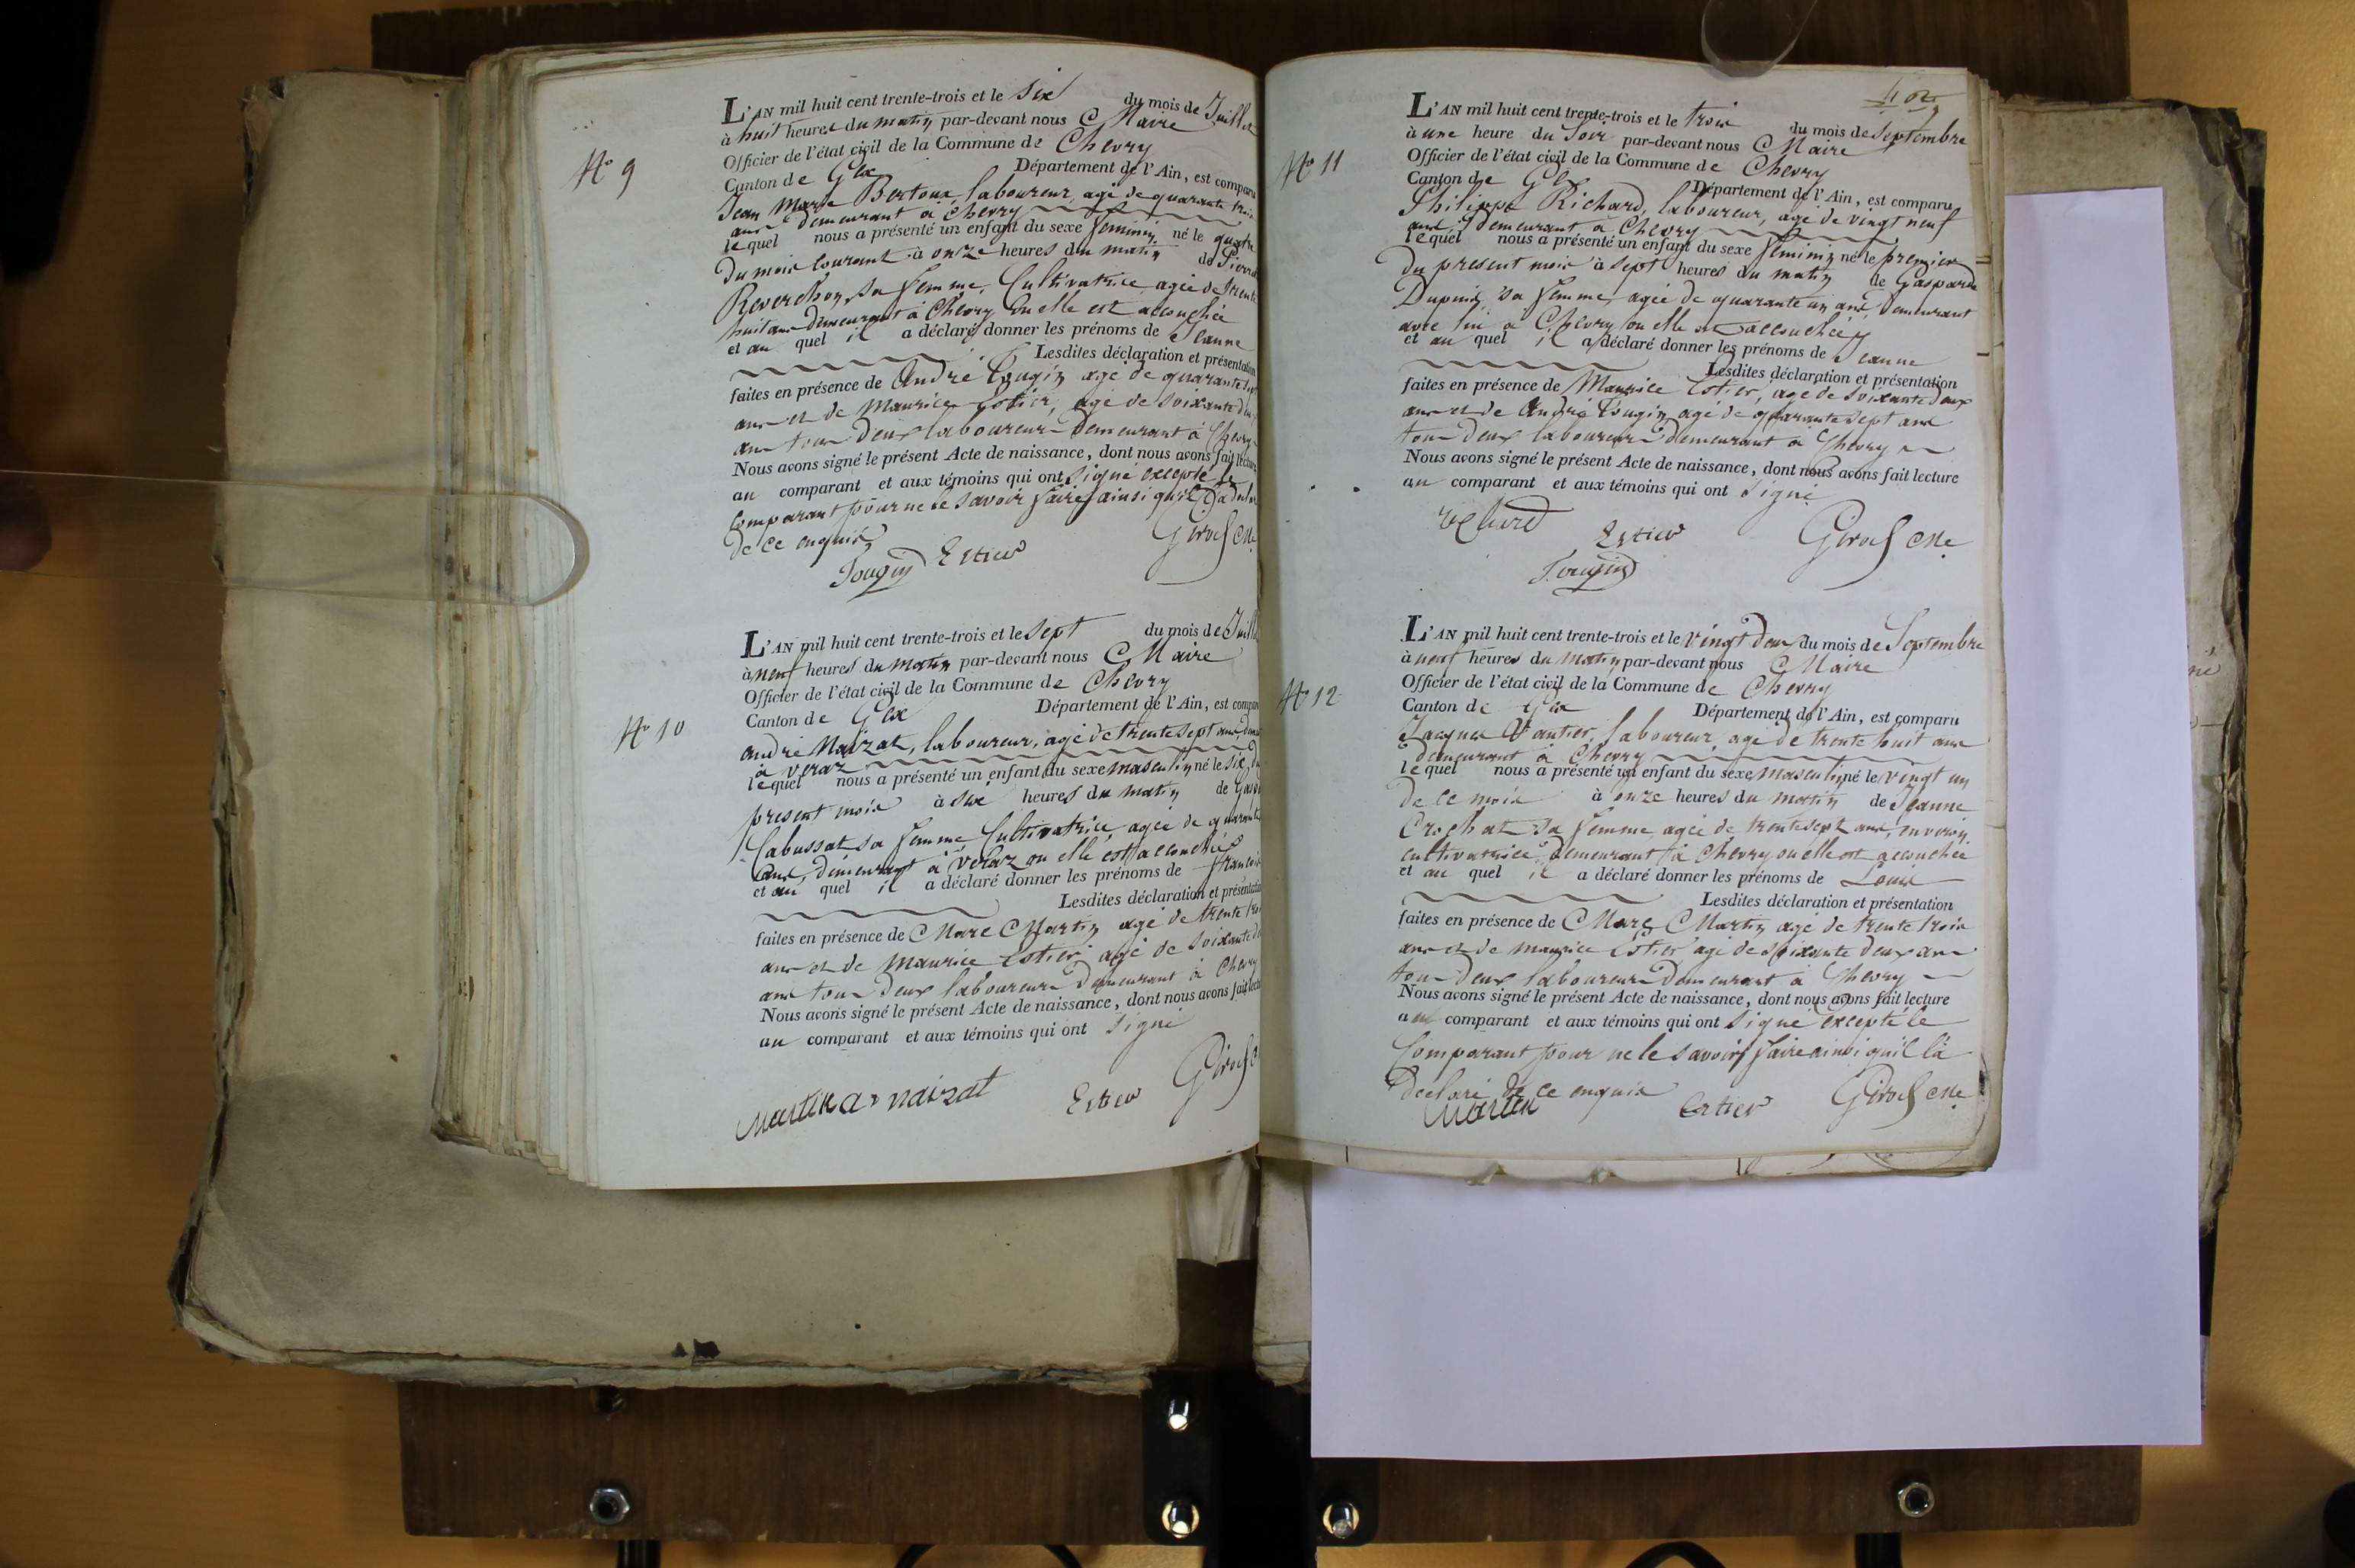 L'AN mil huit cent trente-trois et le six du mois de Juillet
à huit heures du matin par-devant nous Maire
Officier de l'état civil de la Commune de Chevry
N° 9
Canton de Gex Département de l'Ain, est comparu
Jean Marie Bertoux, laboureur, agé de quarante trois
ans demeurant à Chevry
lequel nous a présenté un enfant du sexe feminin né le quatre
du mois courant à onze heures du matin de Pierrette
Reverchon, sa femme, Cultivatrice agée de trente
huit ans demeurant à Chevry ou elle est accouchée
et au quel il a déclaré donner les prénoms de Jeanne
Lesdites déclaration et présentation
faites en présence de André Tougin agé de quarante sept
ans et de Maurice Estier, agé de soixante deux
ans tous deux laboureurs demeurant à Chevry
Nous avons signé le présent Acte de naissance, dont nous avons fait lecture
au comparant et aux témoins qui ont signé excepté le
comparant pour ne le savoir faire ainsi qu'il l'a
de ce enquis
Tougin Estier Girod Me
L'AN mil huit cent trente-trois et le sept du mois de Juillet
à neuf heures du matin par-devant nous Maire
Officier de l'état civil de la Commune de Chevry
N° 10
Canton de Gex Département de l'Ain, est comparu
andré Naizat, laboureur, agé de trente sept ans,
à veraz
lequel nous a présenté un enfant du sexe masculin né le six du
present mois à six heures du matin de
Cabussat sa femme Cultivatrice agée de quarante
ans, demeurant à veraz ou elle est accouchée
et au quel il a déclaré donner les prénoms de francois
Lesdites déclaration et présentation
faites en présence de Marc Martin agé de trente trois
ans et de Maurice Estier agé de soixante deux
ans tous deux laboureurs demeurant à Chevry
Nous avons signé le présent Acte de naissance, dont nous avons fait lecture
au comparant et aux témoins qui ont signé
Martin ar naizat Estier Girod
N° 11
L'AN mil huit cent trente-trois et le trois du mois de Septembre
à une heure du Soir par-devant nous Maire
Officier de l'état civil de la Commune de Chevry
Canton de Gex Département de l'Ain, est comparu
Philippe Richard, laboureur, agé de vingt neuf
ans, demeurant à Chevry
lequel nous a présenté un enfant du sexe féminin né le premier
du present mois à sept heures du matin de Gasparde
Dupuis, sa femme, agée de quarante un ans demeurant
avec lui à Chevry ou elle est accouchée
et au quel il a déclaré donner les prénoms de Jeanne
Lesdites déclaration et présentation
faites en présence de Maurice Estier, agé de soixante deux
ans et de André Tougin agé de quarante sept ans
tous deux laboureurs demeurant à Chevry
Nous avons signé le présent Acte de naissance, dont nous avons fait lecture
au comparant et aux témoins qui ont signé
richard Estier Girod Me
Tougin
L'AN mil huit cent trente-trois et le vingt deux du mois de Septembre
à neuf heures du matin par-devant nous Maire
Officier de l'état civil de la Commune de Chevry
N° 12
Canton de Gex Département de l'Ain, est comparu
Jacques Vautier, laboureur, agé de trente huit ans
demeurant à Chevry
lequel nous a présenté un enfant du sexe masculin né le vingt un
de ce mois à onze heures du matin de Jeanne
Crochat sa femme agée de trente sept ans, environ
cultivatrice, demeurant à Chevry ou elle est accouchée
et au quel il a déclaré donner les prénoms de Louis
Lesdites déclaration et présentation
faites en présence de Marc Martin agé de trente trois
ans et de maurice Estier agé de soixante deux ans
tous deux laboureurs demeurant à Chevry
Nous avons signé le présent Acte de naissance, dont nous avons fait lecture
au comparant et aux témoins qui ont signé excepté le
Comparant pour ne le savoir faire ainsi qu'il l'a
déclaré de ce enquis
Martin Estier Girod Me